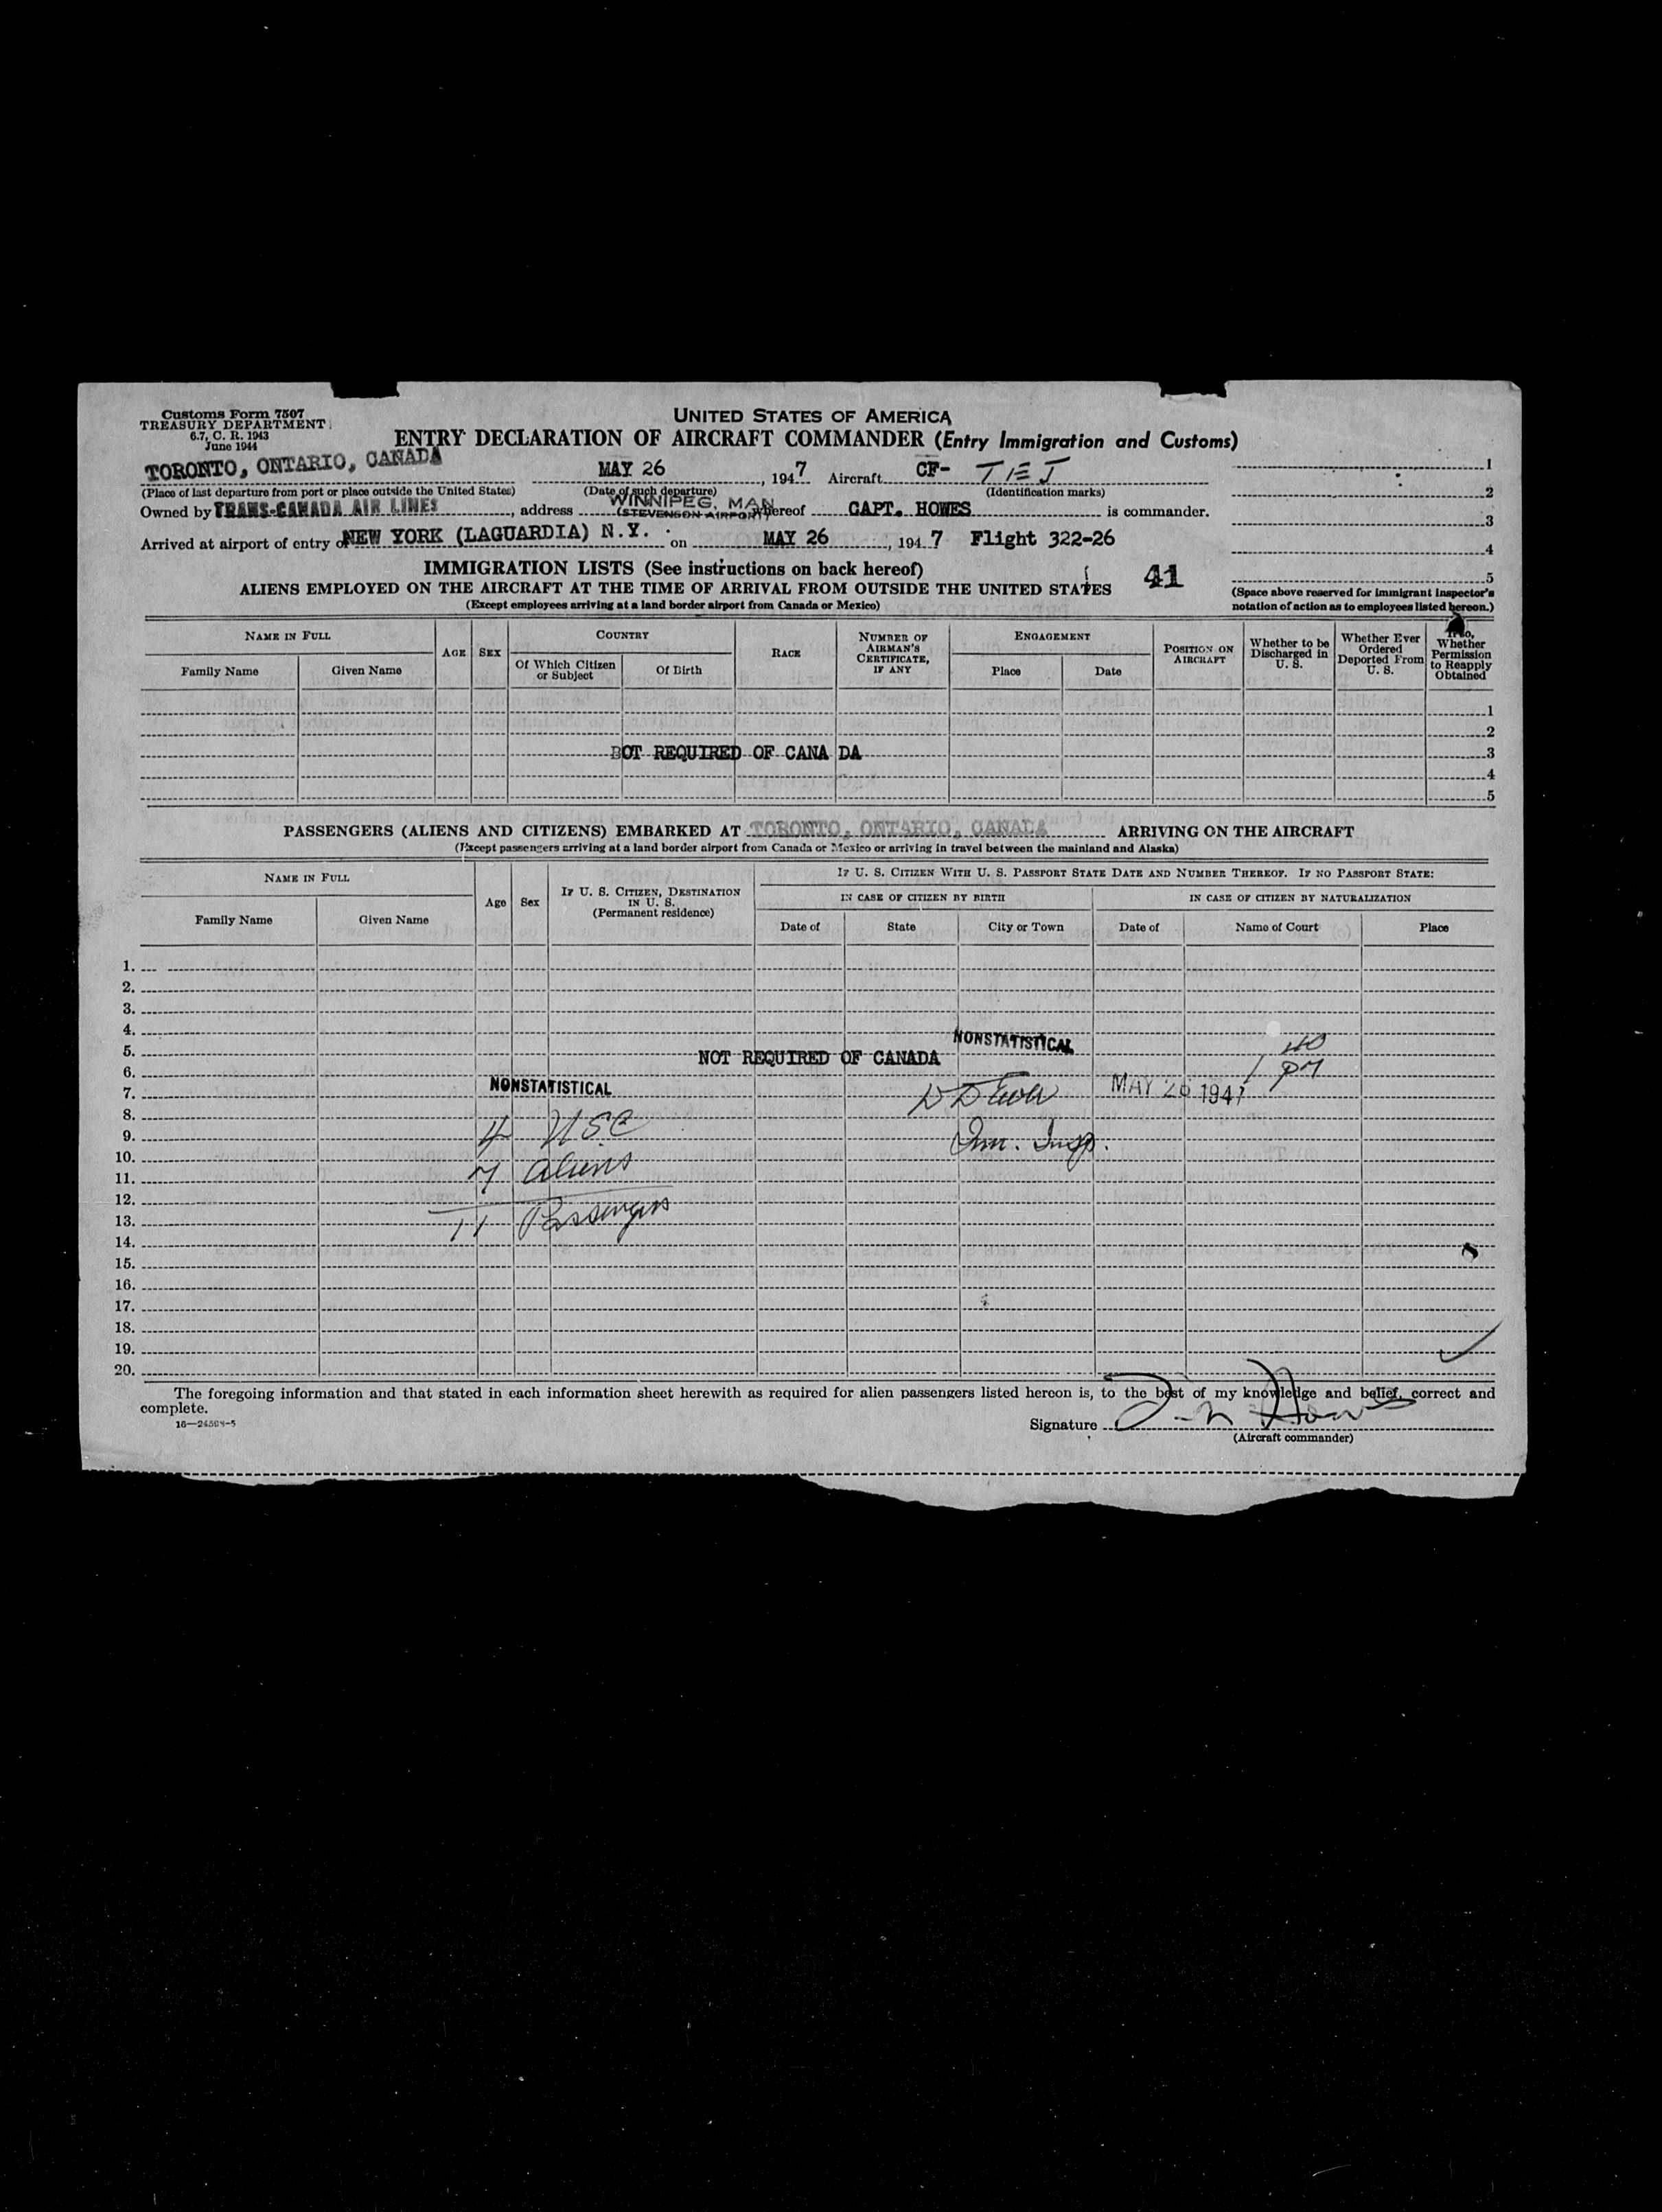 Customs Form 7507
TREASURY DEPARTMENT
6.7, C. R. 1943
June 1944
UNITED STATES OF AMERICA
ENTRY DECLARATION OF AIRCRAFT COMMANDER (Entry Immigration and Customs)
TORONTO, ONTARIO, CANADA MAY 26, 1947 Aircraft CF- TEJ 1
(Place of last departure from port or place outside the United States) (Date of such departure) (Identification marks) 2
WINNIPEG, MAN
Owned by TRANS-CANADA AIR LINES, address (STEVENSON AIRPORT) whereof CAPT. HOWES is commander. 3
Arrived at airport of entry of NEW YORK (LAGUARDIA) N.Y. on MAY 26, 1947 Flight 322-26 4
IMMIGRATION LISTS (See instructions on back hereof) 41 5
ALIENS EMPLOYED ON THE AIRCRAFT AT THE TIME OF ARRIVAL FROM OUTSIDE THE UNITED STATES
(Except employees arriving at a land border airport from Canada or Mexico)
(Space above reserved for immigrant inspector's
notation of action as to employees listed hereon.)
NAME IN FULL
Family Name Given Name
AGE SEX
COUNTRY
Of Which Citizen or Subject Of Birth
RACE
NUMBER OF AIRMAN'S CERTIFICATE, IF ANY
ENGAGEMENT
Place Date
POSITION ON AIRCRAFT
Whether to be Discharged in U. S.
Whether Ever Ordered Deported From U. S.
If so, Whether Permission to Reapply Obtained
1
2
BOT REQUIRED OF CANA DA 3
4
5
PASSENGERS (ALIENS AND CITIZENS) EMBARKED AT TORONTO, ONTARIO, CANADA ARRIVING ON THE AIRCRAFT
(Except passengers arriving at a land border airport from Canada or Mexico or arriving in travel between the mainland and Alaska)
NAME IN FULL
Family Name Given Name
Age Sex
IF U. S. CITIZEN, DESTINATION IN U. S. (Permanent residence)
IF U. S. CITIZEN WITH U. S. PASSPORT STATE DATE AND NUMBER THEREOF. IF NO PASSPORT STATE:
IN CASE OF CITIZEN BY BIRTH IN CASE OF CITIZEN BY NATURALIZATION
Date of State City or Town Date of Name of Court Place
1.
2.
3.
4. NONSTATISTICAL
5. NOT REQUIRED OF CANADA 40
6. 1 PM
7. NONSTATISTICAL MAY 26 1947
8.
9. 4 USC Im. Insp.
10.
11. 7 Aliens
12.
13. 11 Passengers
14.
15.
16.
17.
18.
19.
20.
The foregoing information and that stated in each information sheet herewith as required for alien passengers listed hereon is, to the best of my knowledge and belief, correct and
complete.
16—24568-5
Signature Howes
(Aircraft commander)